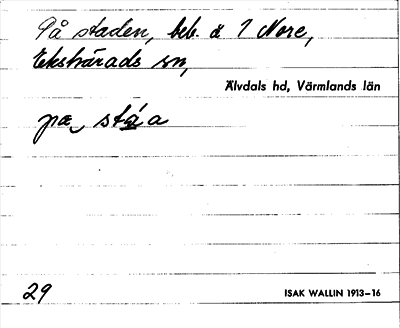 På staden, beb. å 7 Nore,
Ekshärads sn,
Älvdals hd, Värmlands län
pæ stá a
29
ISAK WALLIN 1913–16